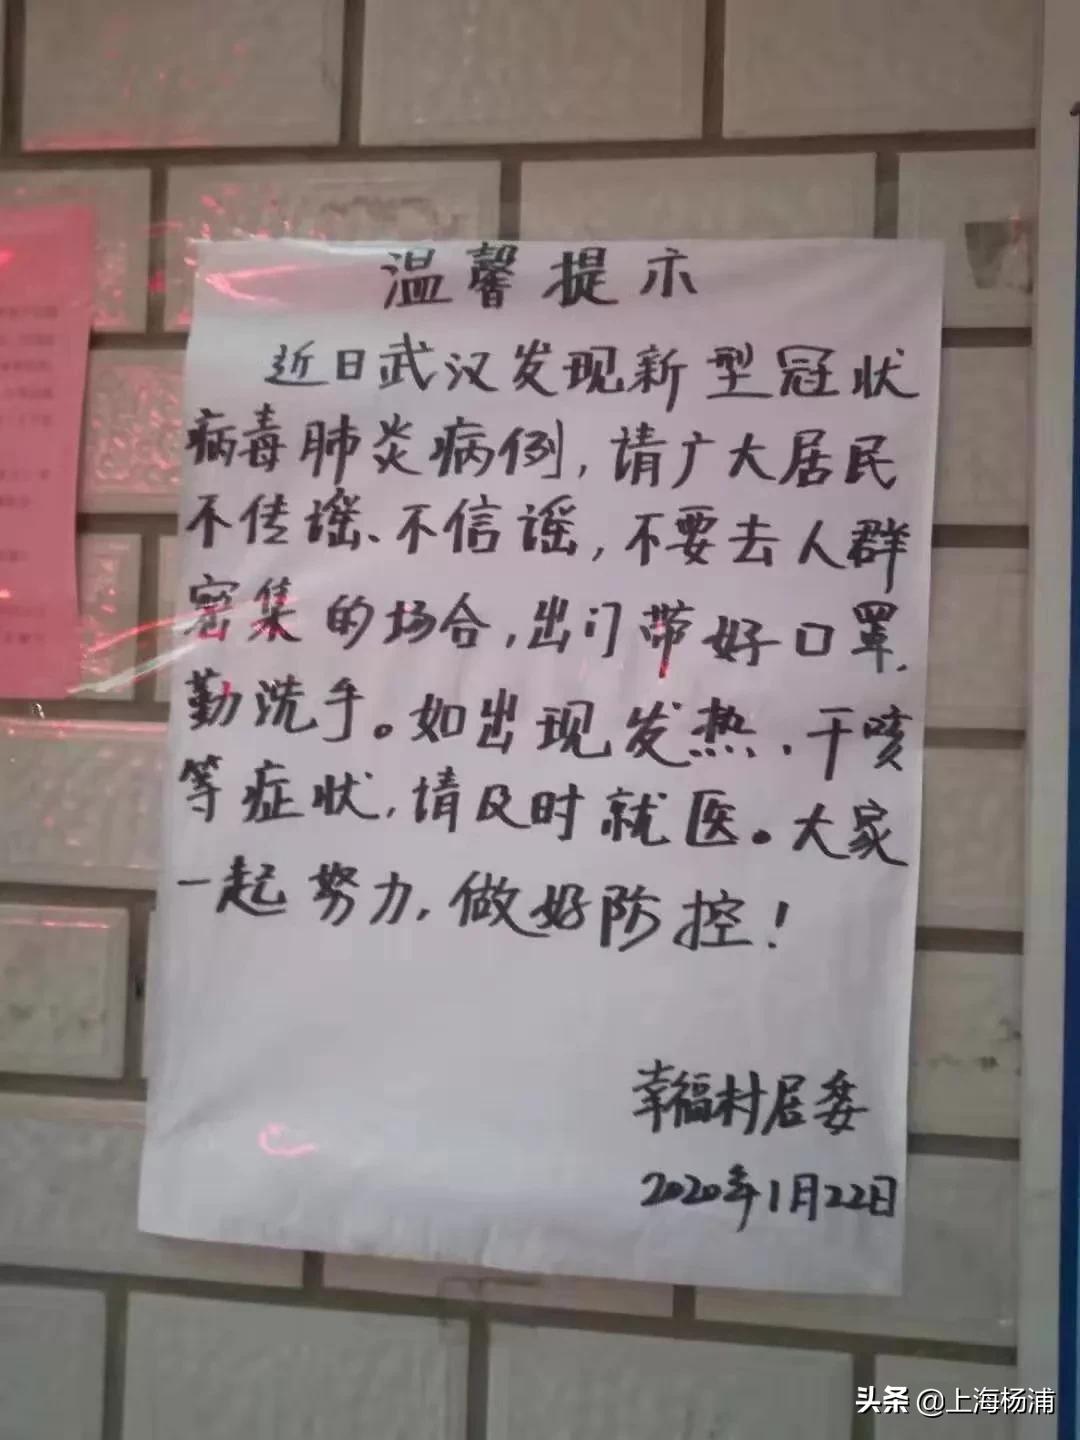 温馨提示
近日武汉发现新型冠状
病毒肺炎病例,请广大居民
不传谣、不信谣,不要去人群
密集的场合,出门带好口罩,
勤洗手。如出现发热、干咳
等症状,请及时就医。大家
一起努力,做好防控!
幸福村居委
2020年1月22日
头条 @上海杨浦